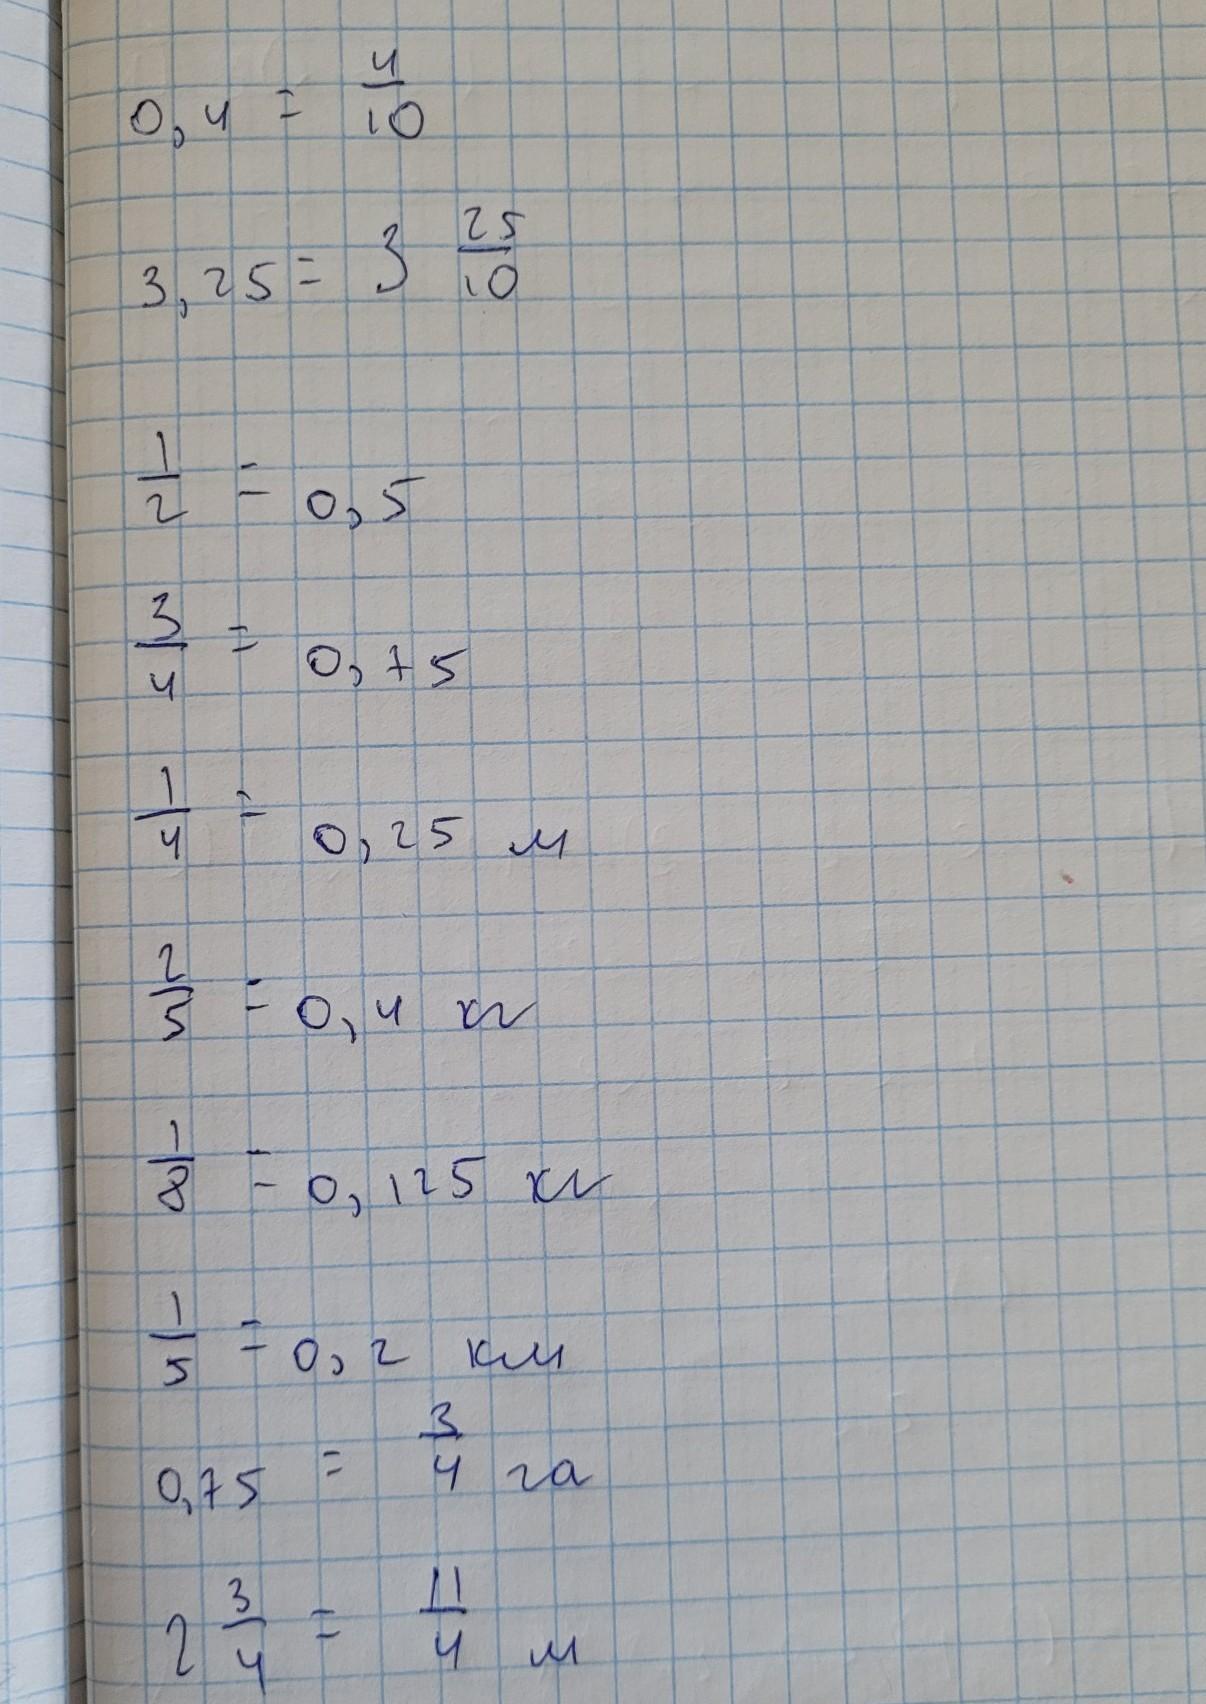 0,4 = 4/10
3,25 = 3 25/10
1/2 = 0,5
3/4 = 0,75
1/4 = 0,25 м
2/5 = 0,4 кг
1/8 = 0,125 кг
1/5 = 0,2 км
0,75 = 3/4 га
2 3/4 = 11/4 м